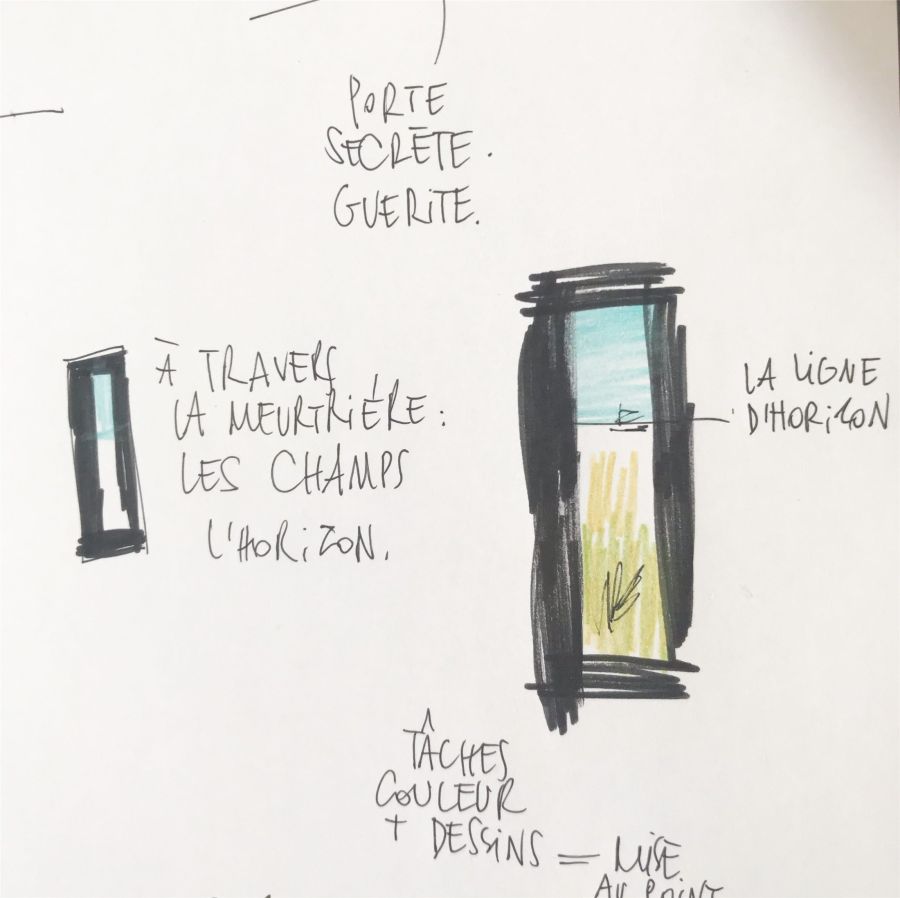 PORTE
SECRÈTE.
GUERITE.
À TRAVERS
LA MEURTRIÈRE:
LES CHAMPS
L'HORIZON.
LA LIGNE
D'HORIZON
TÂCHES
COULEUR
+ DESSINS = MISE
AU POINT